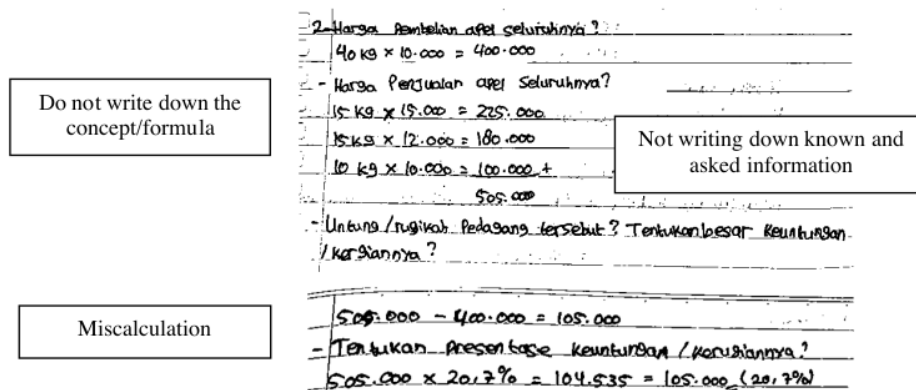 2. Harga Pembelian apel seluruhnya?
40 kg × 10.000 = 400.000
- Harga Penjualan apel Seluruhnya?
15 kg × 15.000 = 225.000
15 kg × 12.000 = 180.000
10 kg × 10.000 = 100.000 +
505.000
- Untung/rugikah Pedagang tersebut? Tentukan besar keuntungan
/kergiannya?
505.000 - 400.000 = 105.000
- Tentukan Presentase keuntungan/kerugiannya?
505.000 × 20,7% = 104.535 = 105.000 (20,7%)
Do not write down the
concept/formula
Not writing down known and
asked information
Miscalculation